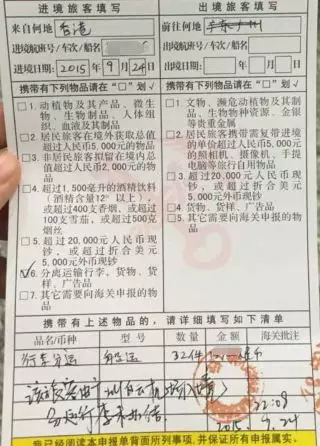 进境旅客填写
出境旅客填写
来自何地 香港
前往何地
进境航班号/车次/船名
出境航班号/车次/船名
进境日期: 2015 年 9 月 24 日
出境日期: 年 月 日
携带有下列物品请在“□”划√
携带有下列物品请在“□”划√
□1. 动植物及其产品、微生物、生物制品、人体组织、血液及其制品
□2. 居民旅客在境外获取总值超过人民币5,000元的物品
□3. 非居民旅客拟留在境内总值超过人民币2,000元的物品
□4. 超过1,500毫升的酒精饮料(酒精含量12°以上),或超过400支香烟,或超过100支雪茄,或超过500克烟丝
□5. 超过20,000元人民币现钞,或超过折合美元5,000元外币现钞
√6. 分离运输行李、货物、货样、广告品
□7. 其它需要向海关申报的物品
□1. 文物、濒危动植物及其制品、生物物种资源、金银等贵重金属
□2. 居民旅客携带需复带进境的单价超过人民币5,000元的照相机、摄像机、手提电脑等旅行自用物品
□3. 超过20,000元人民币现钞,或超过折合美元5,000元外币现钞
□4. 货物、货样、广告品
□5. 其它需要向海关申报的物品
携带有上述物品的,请详细填写如下清单
品名/币种 数量 金额 海关批注
行李 32件
该旅客由
分运行李
22:09
2015. 9.24
我已经阅读本申报单背面所列事项,并保证所有申报属实。